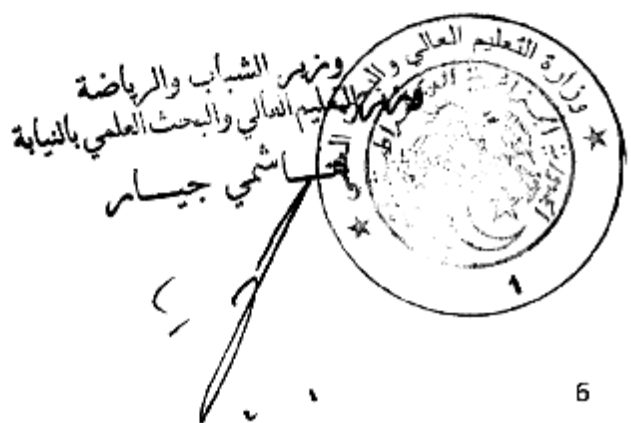 وزير الشباب والرياضة
وزير التعليم العالي والبحث العلمي بالنيابة
هاشمي جيار
وزارة التعليم العالي و البحث العلمي
1
6